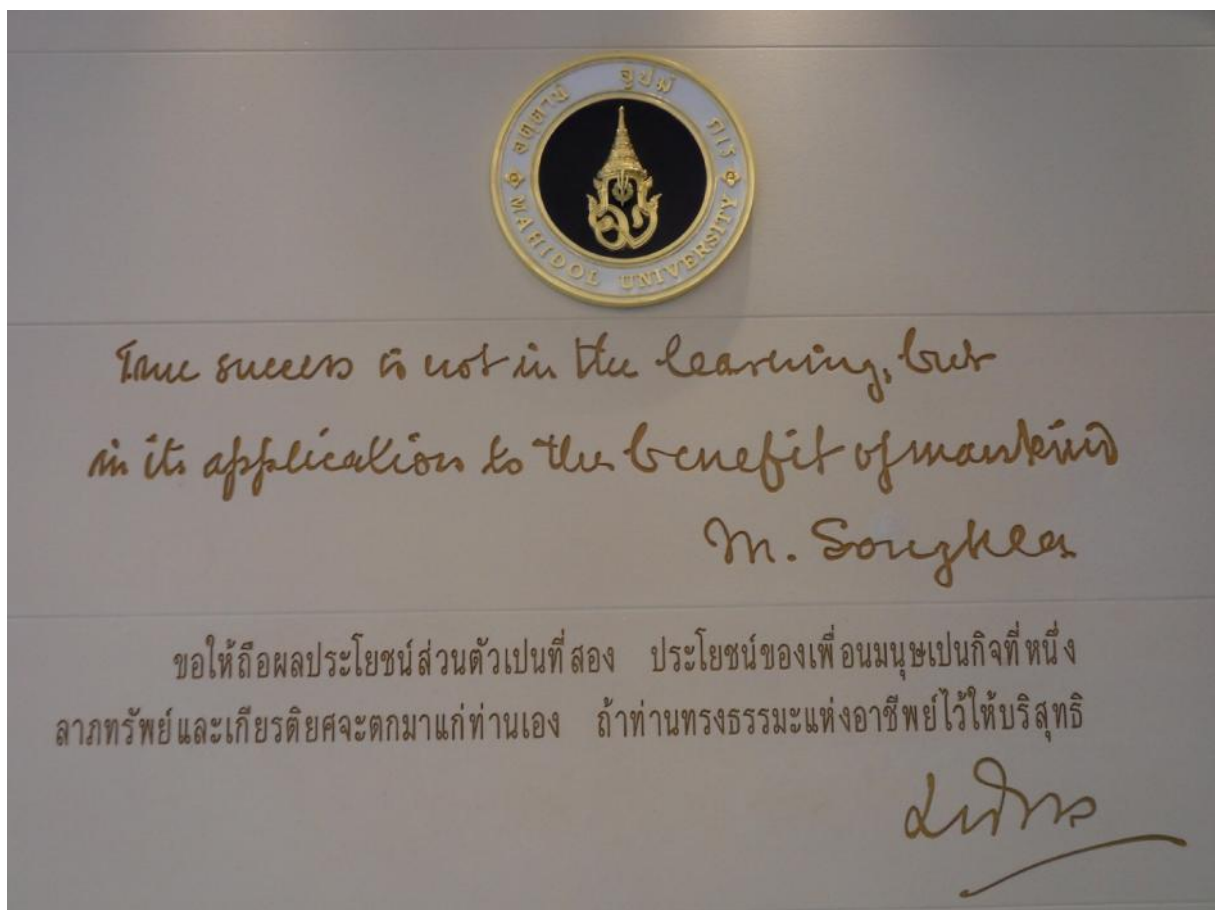 อตฺตานํ อุปมํ กเร
MAHIDOL UNIVERSITY
True success is not in the learning, but
in its application to the benefit of mankind
M. Songkla
ขอให้ถือผลประโยชน์ส่วนตัวเปนที่สอง ประโยชน์ของเพื่อนมนุษเปนกิจที่หนึ่ง
ลาภทรัพย์และเกียรติยศจะตกมาแก่ท่านเอง ถ้าท่านทรงธรรมะแห่งอาชีพย์ไว้ให้บริสุทธิ